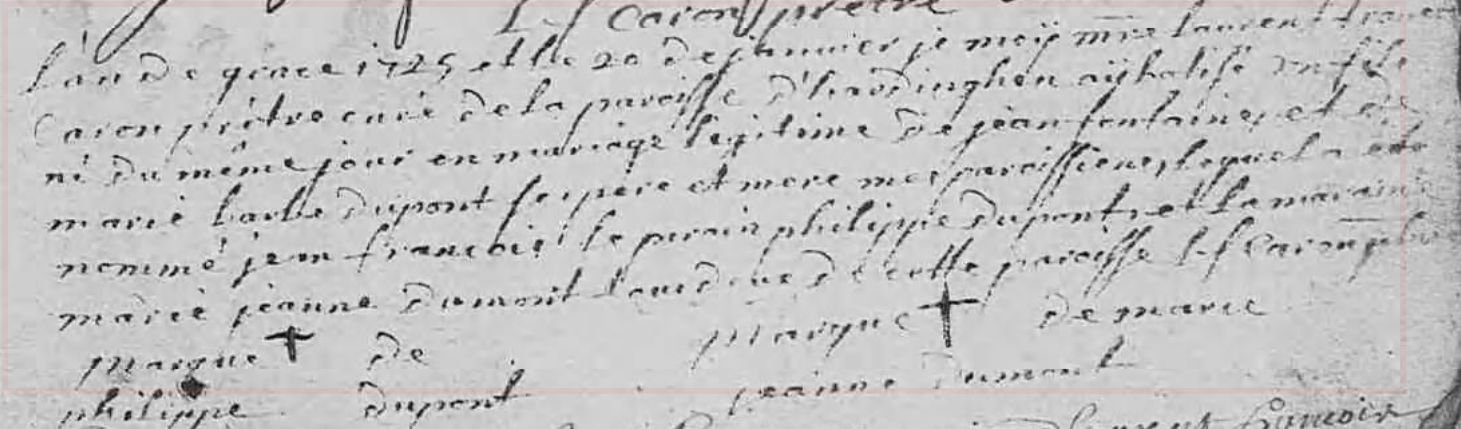 L f Caron prêtre
l'an de grace 1725 et le 20 de janvier je moÿ mre laurent franco
Caron prêtre curé de la paroisse d'hardinghen aÿ batisé un fils
né du même jour en mariage legitime de jean fontaine, et de
marie barbe dupont ses pere et mere mes paroissiens, lequel a été
nommé jean francois le parain philippe dupont, et la maraine
marie jeanne dumont tous deux de cette paroisse L f Caron ptre
marque de marque de marie
philippe dupont jeanne dumont
laurent francois